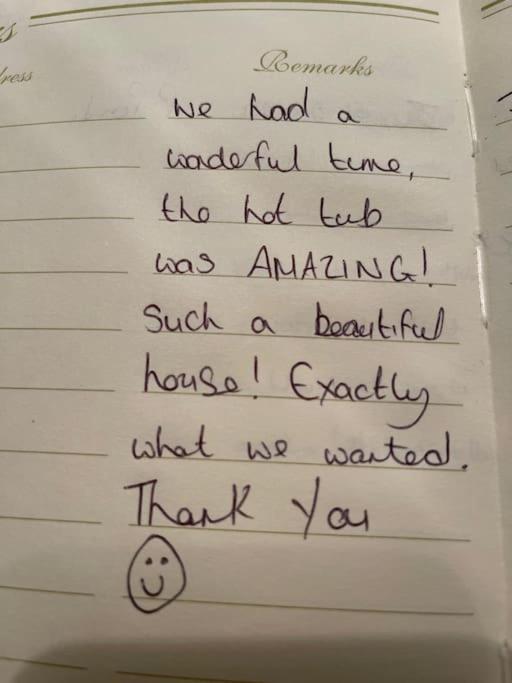 Remarks
We had a
wonderful time,
the hot tub
was AMAZING!
Such a beautiful
house! Exactly
what we wanted.
Thank You